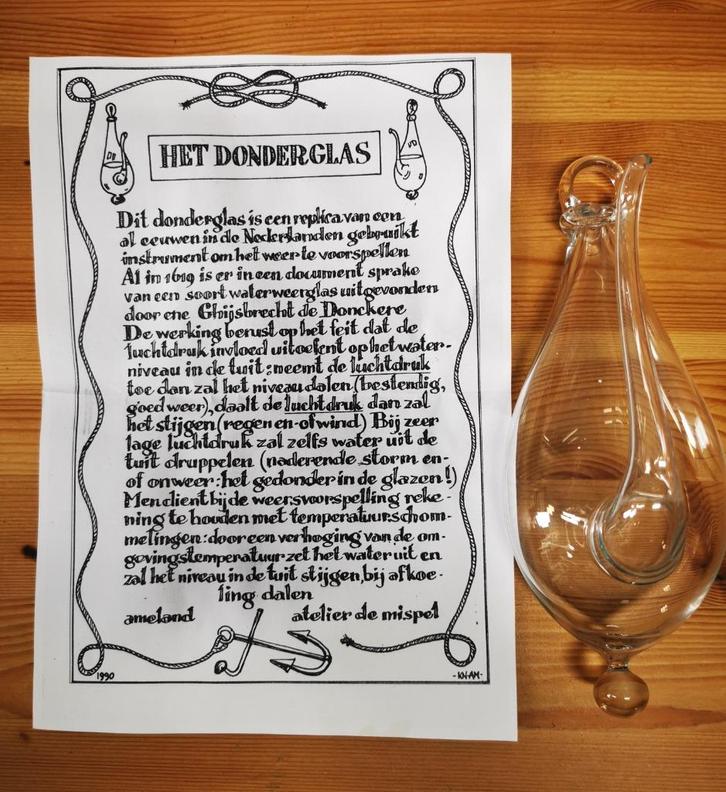 HET DONDERGLAS
Dit donderglas is een replica van een
al eeuwen in de Nederlanden gebruikt
instrument om het weer te voorspellen
Al in 1619 is er in een document sprake
van een soort waterweerglas uitgevonden
door ene Ghijsbrecht de Donckere
De werking berust op het feit dat de
luchtdruk invloed uitoefent op het water-
niveau in de tuit: neemt de luchtdruk
toe dan zal het niveau dalen (bestendig,
goed weer), daalt de luchtdruk dan zal
het stijgen (regen en-of wind) Bij zeer
lage luchtdruk zal zelfs water uit de
tuit druppelen (naderende storm en-
of onweer: het gedonder in de glazen!)
Men dient bij de weersvoorspelling reke-
ning te houden met temperatuurschom-
melingen: door een verhoging van de om-
gevingstemperatuur zet het water uit en
zal het niveau in de tuit stijgen, bij afkoe-
ling dalen
ameland atelier de mispel
1990